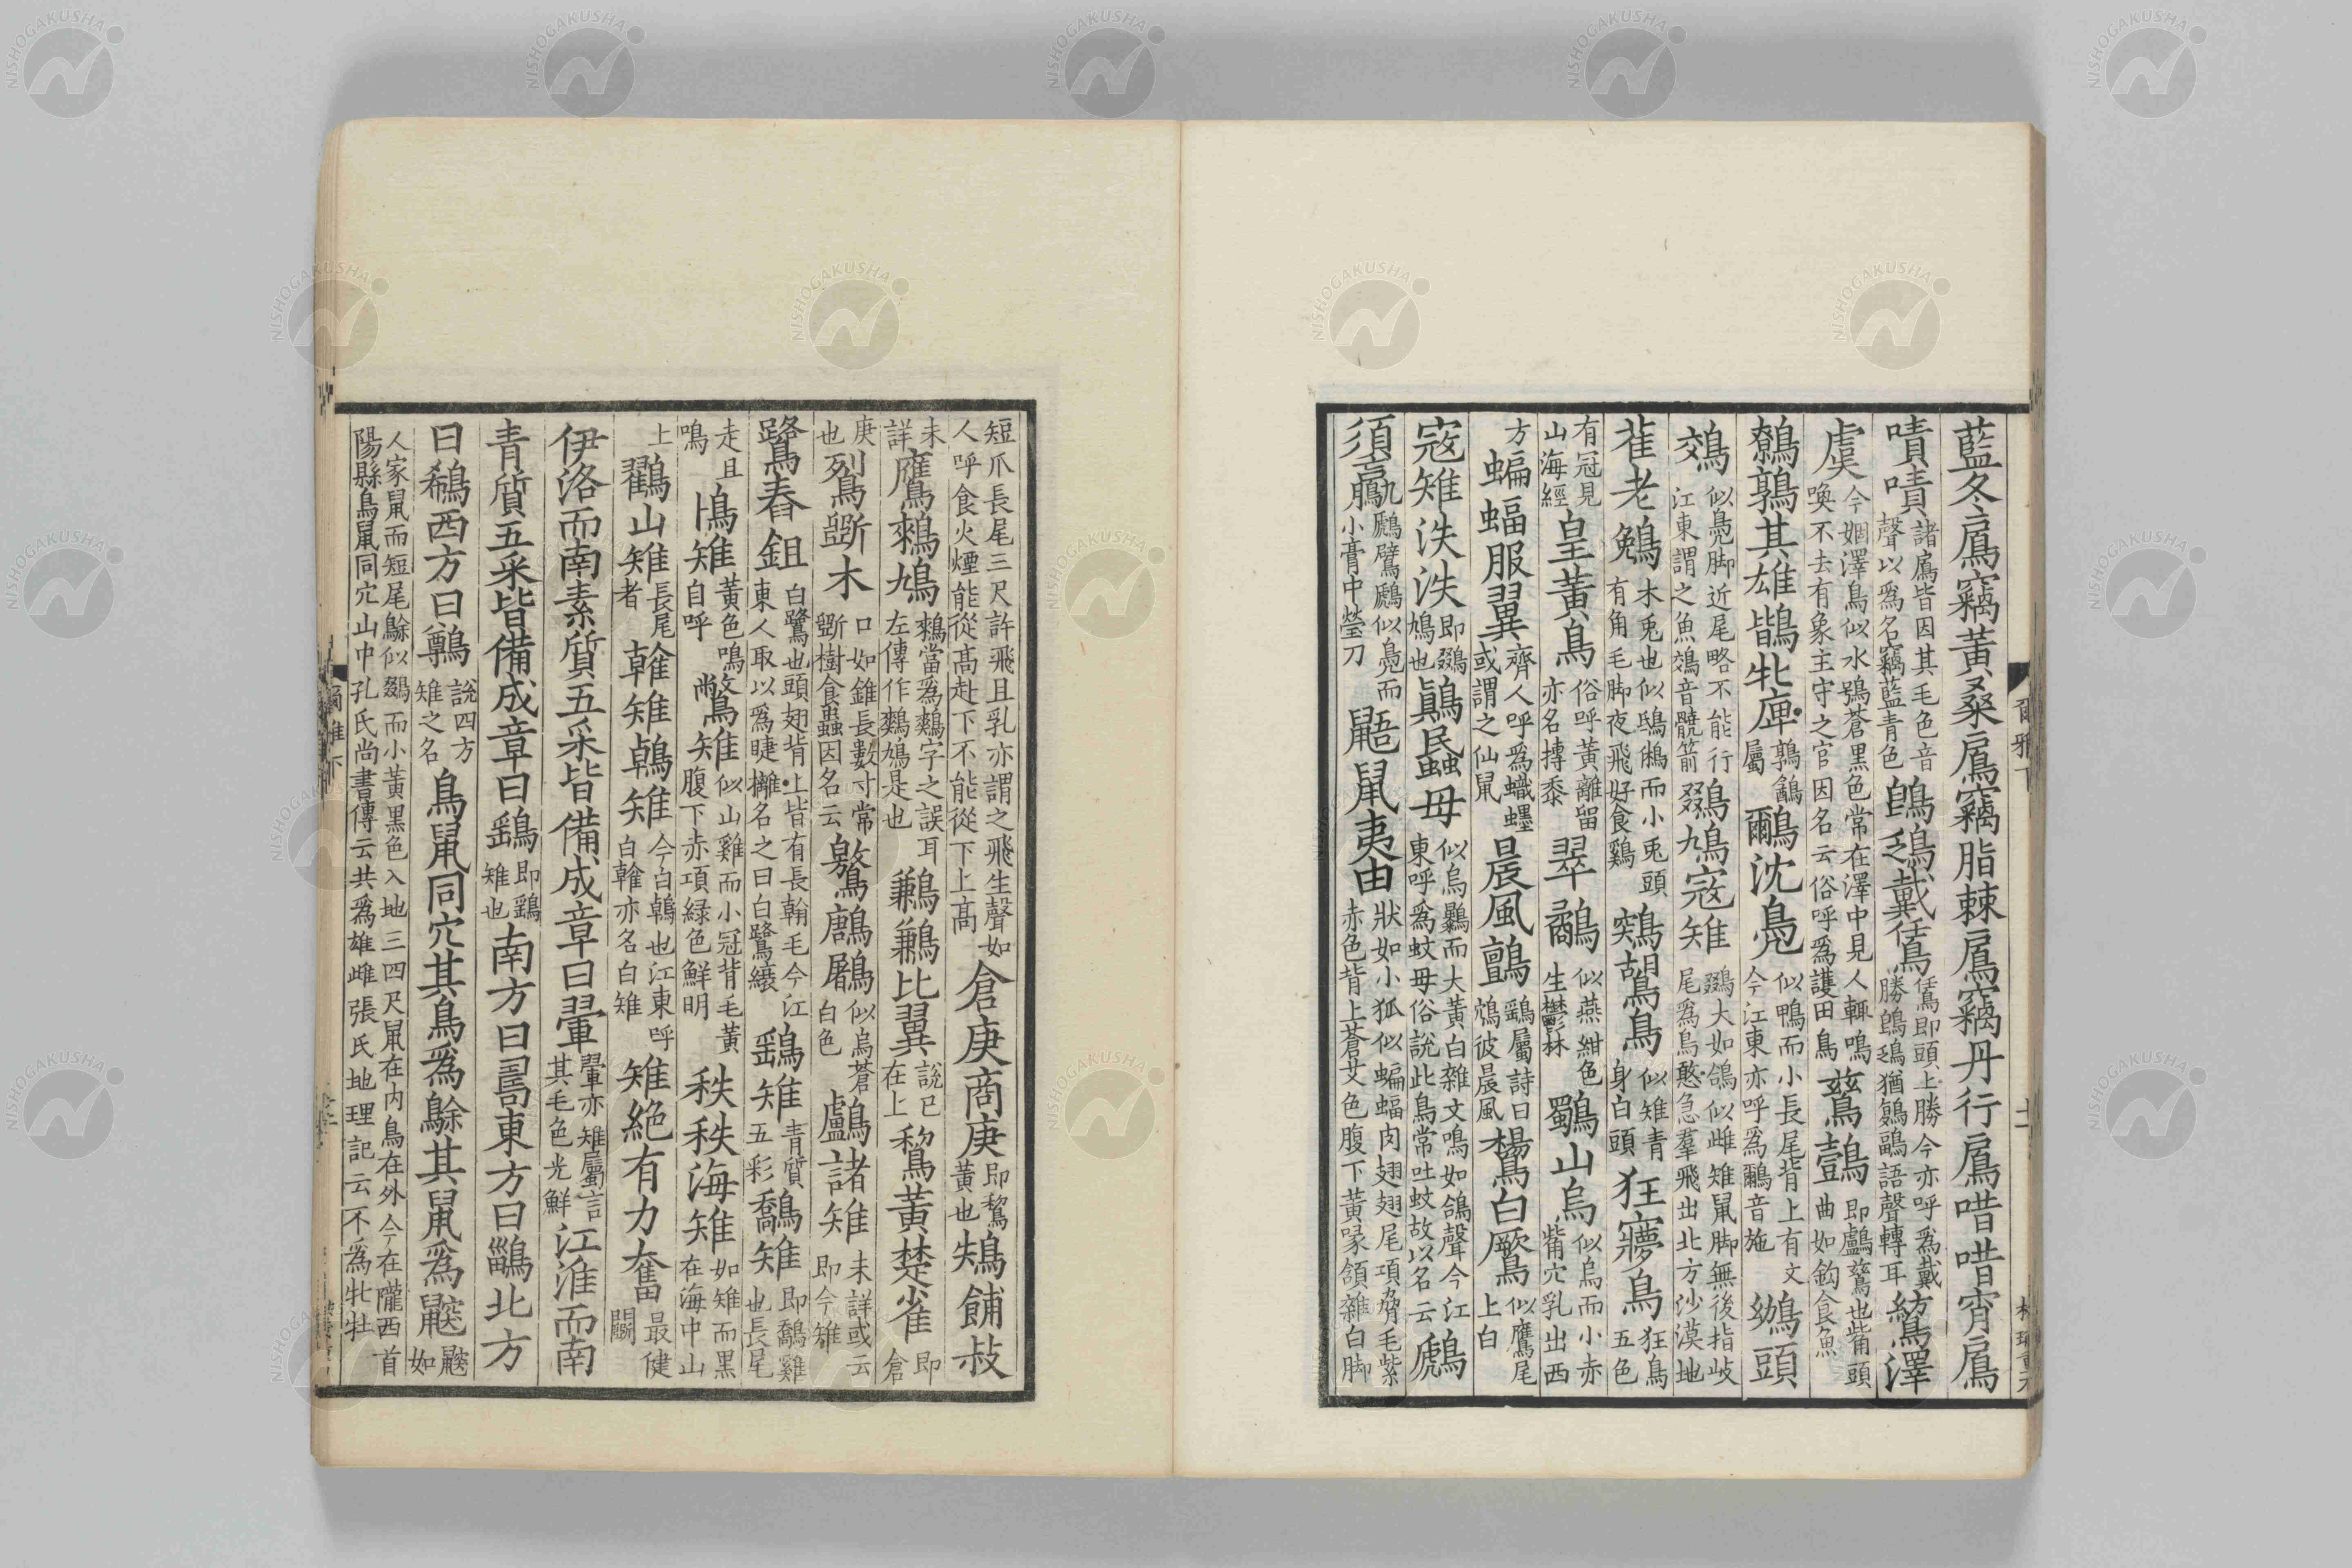 藍冬鳸竊黃桑鳸竊脂棘鳸竊丹行鳸唶唶宵鳸
嘖嘖諸鳸皆因其毛色音聲以爲名竊藍青色鵖鴔戴鵀鵀即頭上勝今亦呼爲戴勝鵖鴔猶鶝鶔語聲轉耳鶭澤
虞今婟澤鳥似水鴞蒼黑色常在澤中見人輒鳴喚不去有象主守之官因名云俗呼爲護田鳥鶿鷧即鸕鶿也觜頭曲如鈎食魚
鷯鶉其雄鶛牝庳鶉鷭屬鸍沈鳧似鴨而小長尾背上有文今江東亦呼爲鸍音施鴢頭
鵁似鳧脚近尾略不能行江東謂之魚鵁音髐箭鵽鳩寇雉鵽大如鴿似雌雉鼠脚無後指歧尾爲鳥憨急羣飛出北方沙漠地
萑老鵵木兎也似鴟鵂而小兎頭有角毛脚夜飛好食鷄鶟鶘鳥似雉青身白頭狂㝱鳥狂鳥五色
有冠見山海經皇黃鳥俗呼黃離留亦名搏黍翠鷸似燕紺色生鬱林鸀山烏似烏而小赤觜穴乳出西
方蝙蝠服翼齊人呼爲蟙䘃或謂之仙鼠晨風鸇鷂屬詩曰鴥彼晨風鸉白鷢似鷹尾上白
寇雉泆泆即鵽鳩也鷏蟁母似烏鸔而大黃白雜文鳴如鴿聲今江東呼爲蚊母俗說此鳥常吐蚊故以名云鷉
須鸁鷉鷿鷉似鳧而小膏中瑩刀鼯鼠夷由狀如小狐似蝙蝠肉翅翅尾項脅毛紫赤色背上蒼艾色腹下黃喙頷雜白脚
短爪長尾三尺許飛且乳亦謂之飛生聲如人呼食火煙能從高赴下不能從下上高倉庚商庚即鵹黃也鴩餔敊
未詳鷹鶆鳩鶆當爲鷞字之誤耳左傳作鷞鳩是也鶼鶼比翼說已在上鵹黃楚雀即倉
庚也鴷斲木口如錐長數寸常斲樹食蟲因名云鸄鶶鷵似烏蒼白色鸕諸雉未詳或云即今雉
鷺舂鉏白鷺也頭翅背上皆有長翰毛今江東人取以爲睫㰚名之曰白鷺縗鷂雉青質五彩鷮雉即鷮雞也長尾
走且鳴鳪雉黃色鳴自呼鷩雉似山雞而小冠背毛黃腹下赤項緑色鮮明秩秩海雉如雉而黑在海中山
上鸐山雉長尾者雗雉鵫雉今白鵫也江東呼白雗亦名白雉雉絕有力奮最健鬭
伊洛而南素質五采皆備成章曰翬翬亦雉屬言其毛色光鮮江淮而南
青質五采皆備成章曰鷂即鷂雉也南方曰𢏚東方曰鶅北方
曰鵗西方曰鷷說四方雉之名鳥鼠同穴其鳥爲鵌其鼠爲鼵鼵如
人家鼠而短尾鵌似鵽而小黃黑色入地三四尺鼠在內鳥在外今在隴西首陽縣鳥鼠同穴山中孔氏尚書傳云共爲雄雌張氏地理記云不爲牝牡
爾雅下